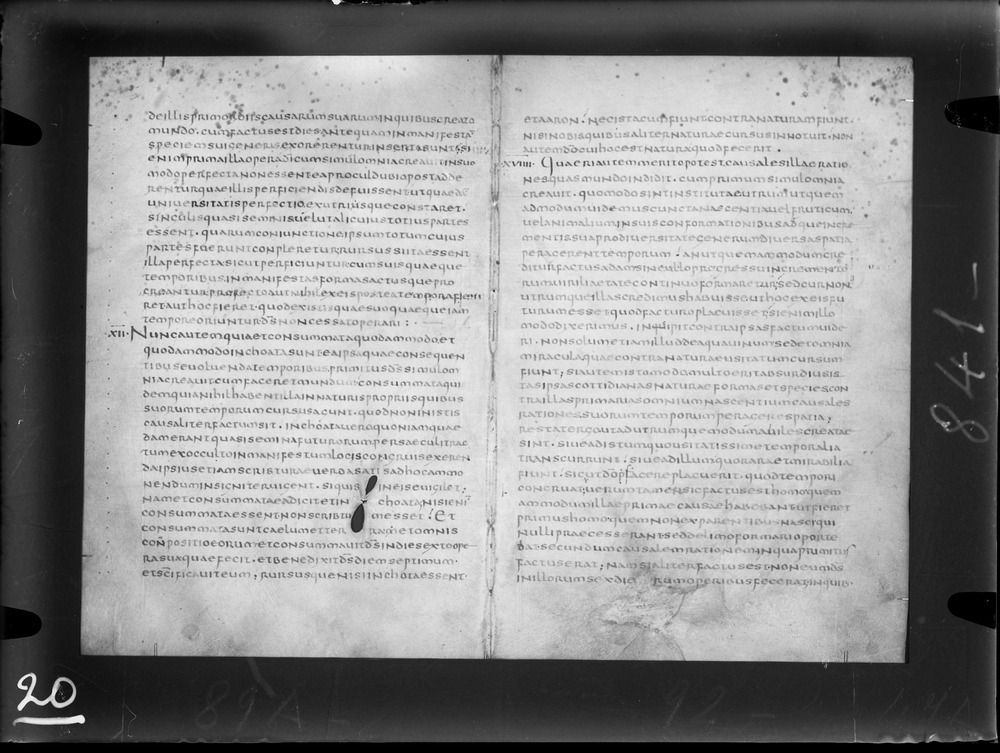 de illis primordiis causarum suarum in quibus creato
mundo. cum factus est dies antequam in manifestā
speciem sui generis exorerentur inserta sunt si
enim prima illa opera dicum simul omnia creavit in suo
modo perfecta non essent ea procul dubio post adde
rentur quae illis perficiendis defuissent ut quaedā
universitatis perfectio. ex utrisque constaret.
singulis quasi semis velut alicuius totius partes
essent. quarum coniunctione ipsum totum cuius
partes fuerunt conpleretur rursus si ita essent
illa perfecta sicut perficiuntur cum suis quaeque
temporibus in manifestas formas actusque pro
creantur profecto aut nihil ex eis postea tempora fieret
ret aut hoc fieret. quod ex istis quae suo quaeque iam
tempore oriuntur d̄s non cessat operari :
.xii. Nunc autem quia et consummata quodammodo. et
quodammodo inchoata sunt ea ipsa quae consequen
tibus evolvenda temporibus primitus d̄s simul om
nia creavit cum faceret mundum consummata qui
dem quia nihil habent illa in naturis propriis quibus
suorum temporum cursus agunt. quod non in istis
causaliter factum sit. inchoata vero quoniam quae
dam erant quasi semina futurorum per saeculi trac
tum ex occulto in manifestum locis congruis exeren
da ipsius etiam scripturae verba satis ad hoc ammo
nendum insigniter vigent. si quis in eis evigilet;
nam et consummata ea dicit et inchoata nisi enim
consummata essent non scribtum esset : Et
consummata sunt caelum et terra et omnis
conpositio eorum et consummavit d̄s in die sexto ope
ra sua quae fecit. et benedixit d̄s diem septimum.
et sc̄ificavit eum; rursusque nisi inchoata essent
et aaron. nec ista cum fiunt contra naturam fiunt.
nisi nobis quibus aliter naturae cursus innotuit. non
autem dō cui hoc est natura quod fecerit.
.xviii. Quaeri autem merito potest causales illae ratio
nes quas mundo indidit. cum primum simul omnia
creavit. quomodo sint institutae utrum ut quem
admodum videmus cuncta nascentia vel fruticum.
vel animalium in suis conformationibus adque incre
mentis sua pro diversitate generum diversa spatia
peragerent temporum. an ut quemammodum cre
ditur factus adam sine ullo progressu incrementorū
rum virili aetate continuo formaretur; sed cur non
utrumque illas credimus habuisse ut hoc ex eis fu
turum esset quod factori placuisset; si enim illo
modo dixerimus. incipit contra ipsas factum vide
ri. non solum etiam illud de aqua vinum sed et omnia
miracula quae contra naturae usitatum cursum
fiunt; si autem isto modo multo erit absurdius is
tas ipsas cottidianas naturae formas et species con
tra illas primarias omnium nascentium causales
rationes suorum temporum peragere spatia;
restat ergo ut ad utrumque modum abiles creatae
sint. sive ad istum quo usitatissime temporalia
transcurrunt. sive ad illum quo rara et mirabilia
fiunt. sicut dō facere placuerit. quod tempori
congruat; verum tamen sic factus est homo quem
ammodum illae primae causae habebant ut fieret
primus homo quem non ex parentibus nasci qui
nulli praecesserant sed de limo formari oporte
bat secundum causalem rationem in qua primitus
factus erat; nam si aliter factus est non eum d̄s
in illorum sex dierum operibus fecerat; in quib
20
841